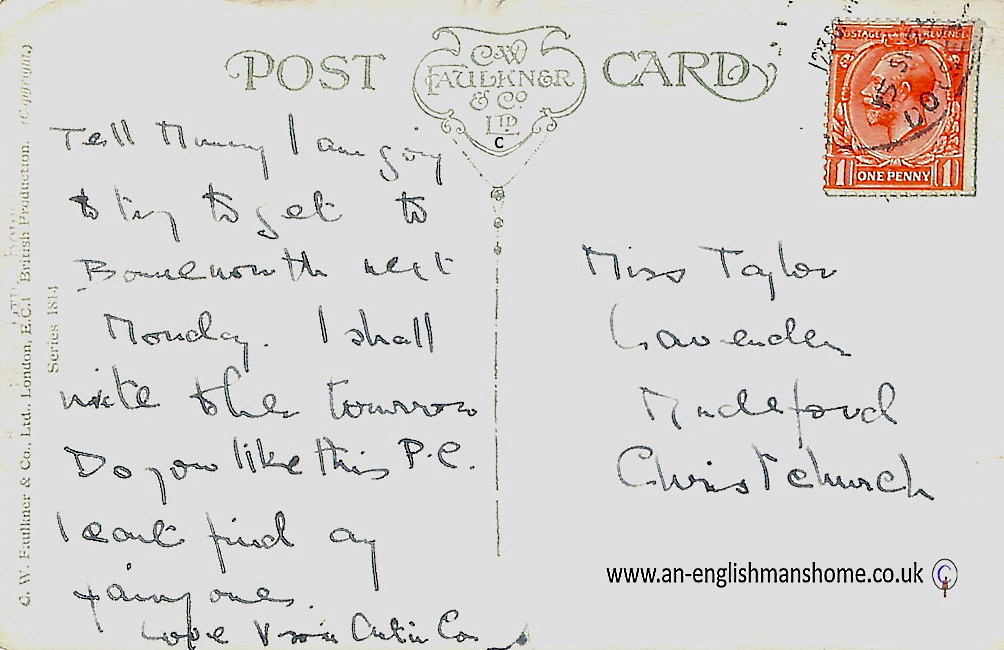 POST CARD
C.W
FAULKNER
& Co
LTD.
C
Tell Mummy I am going
to try to get to
Bournemouth next
Monday. I shall
write to her tomorrow
Do you like this P.C.
I cant find any
fairy ones.
Love from
Miss Taylor
Lavender
Mudeford
Christchurch
C. W. Faulkner & Co., Ltd., London, E.C.1 British Production. (Copyright.)
Series 1814
POSTAGE REVENUE
1 ONE PENNY 1
www.an-englishmanshome.co.uk